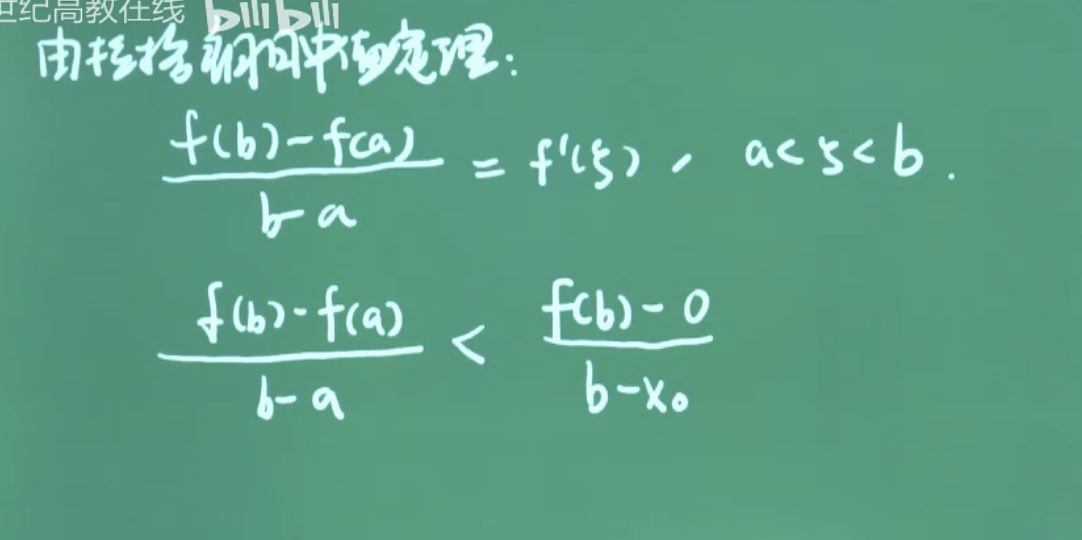 世纪高教在线 bilibili
由拉格朗日中值定理：
f(b)-f(a) / b-a = f'(ξ), a<ξ<b.
f(b)-f(a) / b-a < f(b)-0 / b-x₀